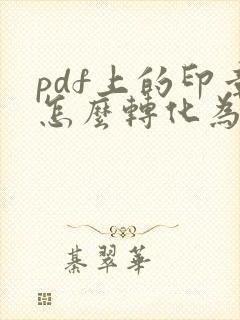 pdf上的印章
怎麼轉化為
綦翠華